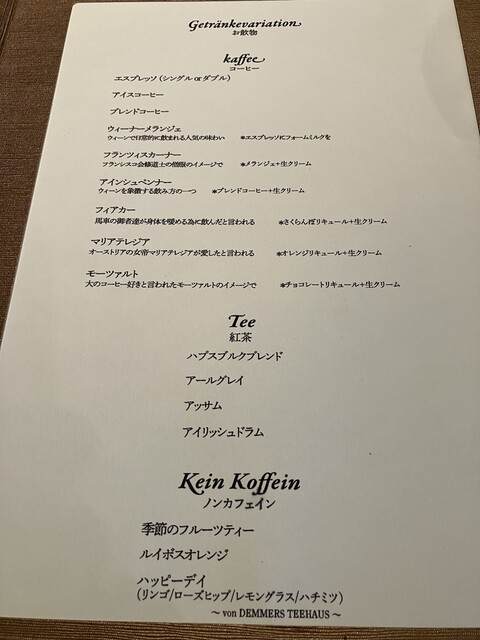 Getränkevariation
お飲物
kaffee
コーヒー
エスプレッソ（シングル or ダブル）
アイスコーヒー
ブレンドコーヒー
ウィーナーメランジェ
ウィーンで日常的に飲まれる人気の味わい ＊エスプレッソにフォームミルクを
フランツィスカーナー
フランシスコ会修道士の僧服のイメージで ＊メランジェ＋生クリーム
アインシュペンナー
ウィーンを象徴する飲み方の一つ ＊ブレンドコーヒー＋生クリーム
フィアカー
馬車の御者達が身体を暖める為に飲んだと言われる ＊さくらんぼリキュール＋生クリーム
マリアテレジア
オーストリアの女帝マリアテレジアが愛したと言われる ＊オレンジリキュール＋生クリーム
モーツァルト
大のコーヒー好きと言われたモーツァルトのイメージで ＊チョコレートリキュール＋生クリーム
Tee
紅茶
ハプスブルクブレンド
アールグレイ
アッサム
アイリッシュドラム
Kein Koffein
ノンカフェイン
季節のフルーツティー
ルイボスオレンジ
ハッピーデイ
（リンゴ/ローズヒップ/レモングラス/ハチミツ）
～ von DEMMERS TEEHAUS ～